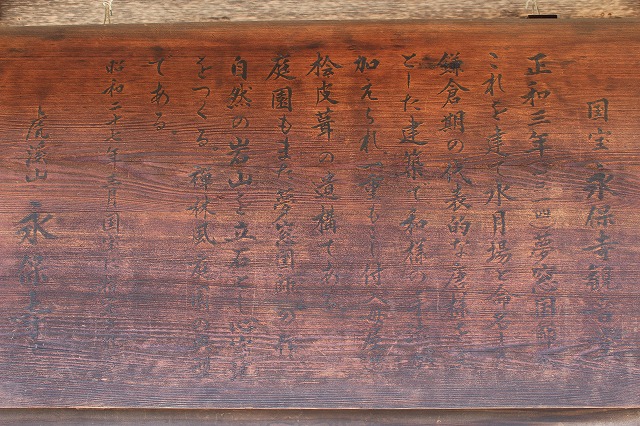 国宝 永保寺観音堂
正和三年(一三一四)夢窓国師
これを建て水月場と命名
鎌倉期の代表的な唐様を
とした建築で和様の
加えられ一重もこし付入母屋
桧皮葺の遺構である
庭園もまた夢窓国師の作
自然の岩山を立石とし心字池
をつくる。禅林風庭園の
である。
昭和二十七年三月国宝に指定
虎渓山 永保寺